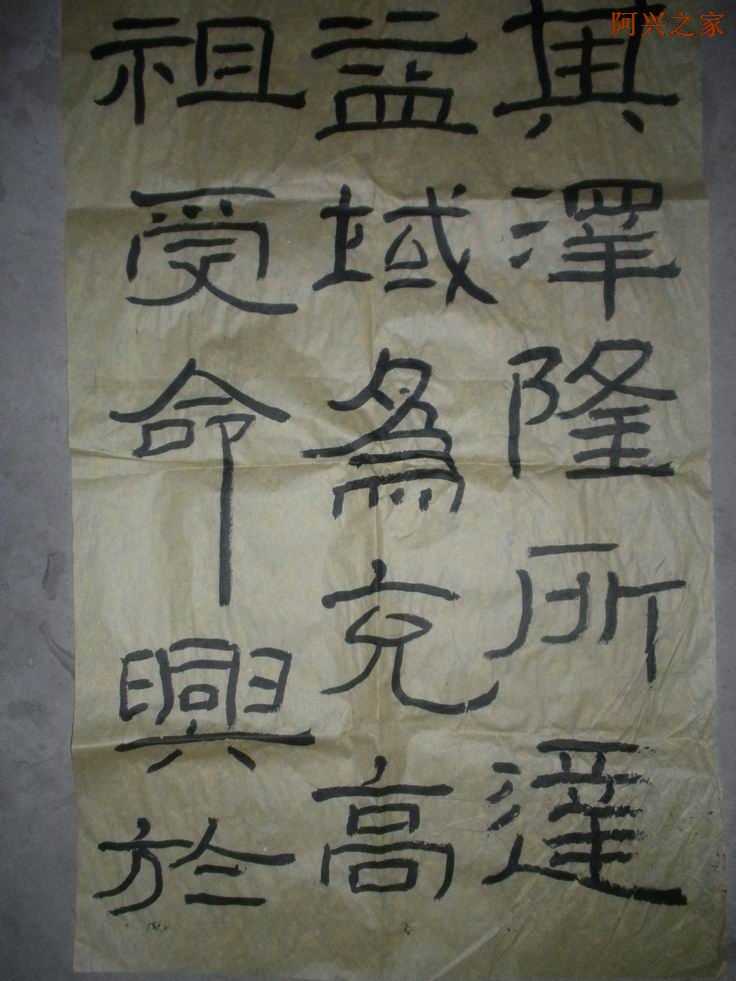 其澤隆所達
益域為充高
祖受命興於
阿兴之家